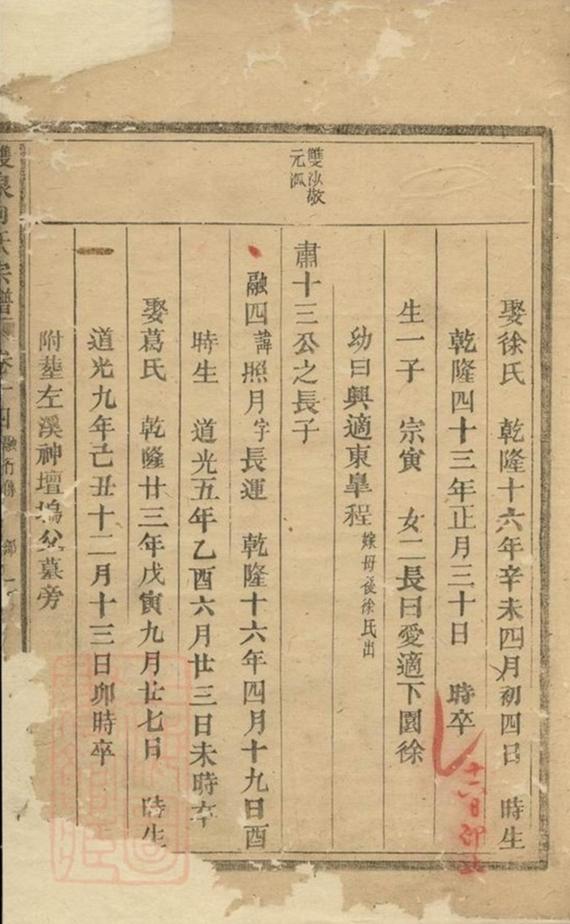 娶徐氏　乾隆十六年辛未四月初四日　時生
乾隆四十三年正月三十日　時卒
十六日卯
生一子　宗寅　女二長曰愛適下園徐
幼曰興適東臯程嫁母後徐氏出
雙泒敬
元泒
肅十三公之長子
融四諱照月字長運　乾隆十六年四月十九日酉
時生　道光五年乙酉六月廿三日未時卒
娶葛氏　乾隆廿三年戊寅九月廿七日　時生
道光九年己丑十二月十三日卯時卒
附塟左溪神壇塢父墓旁
宗譜